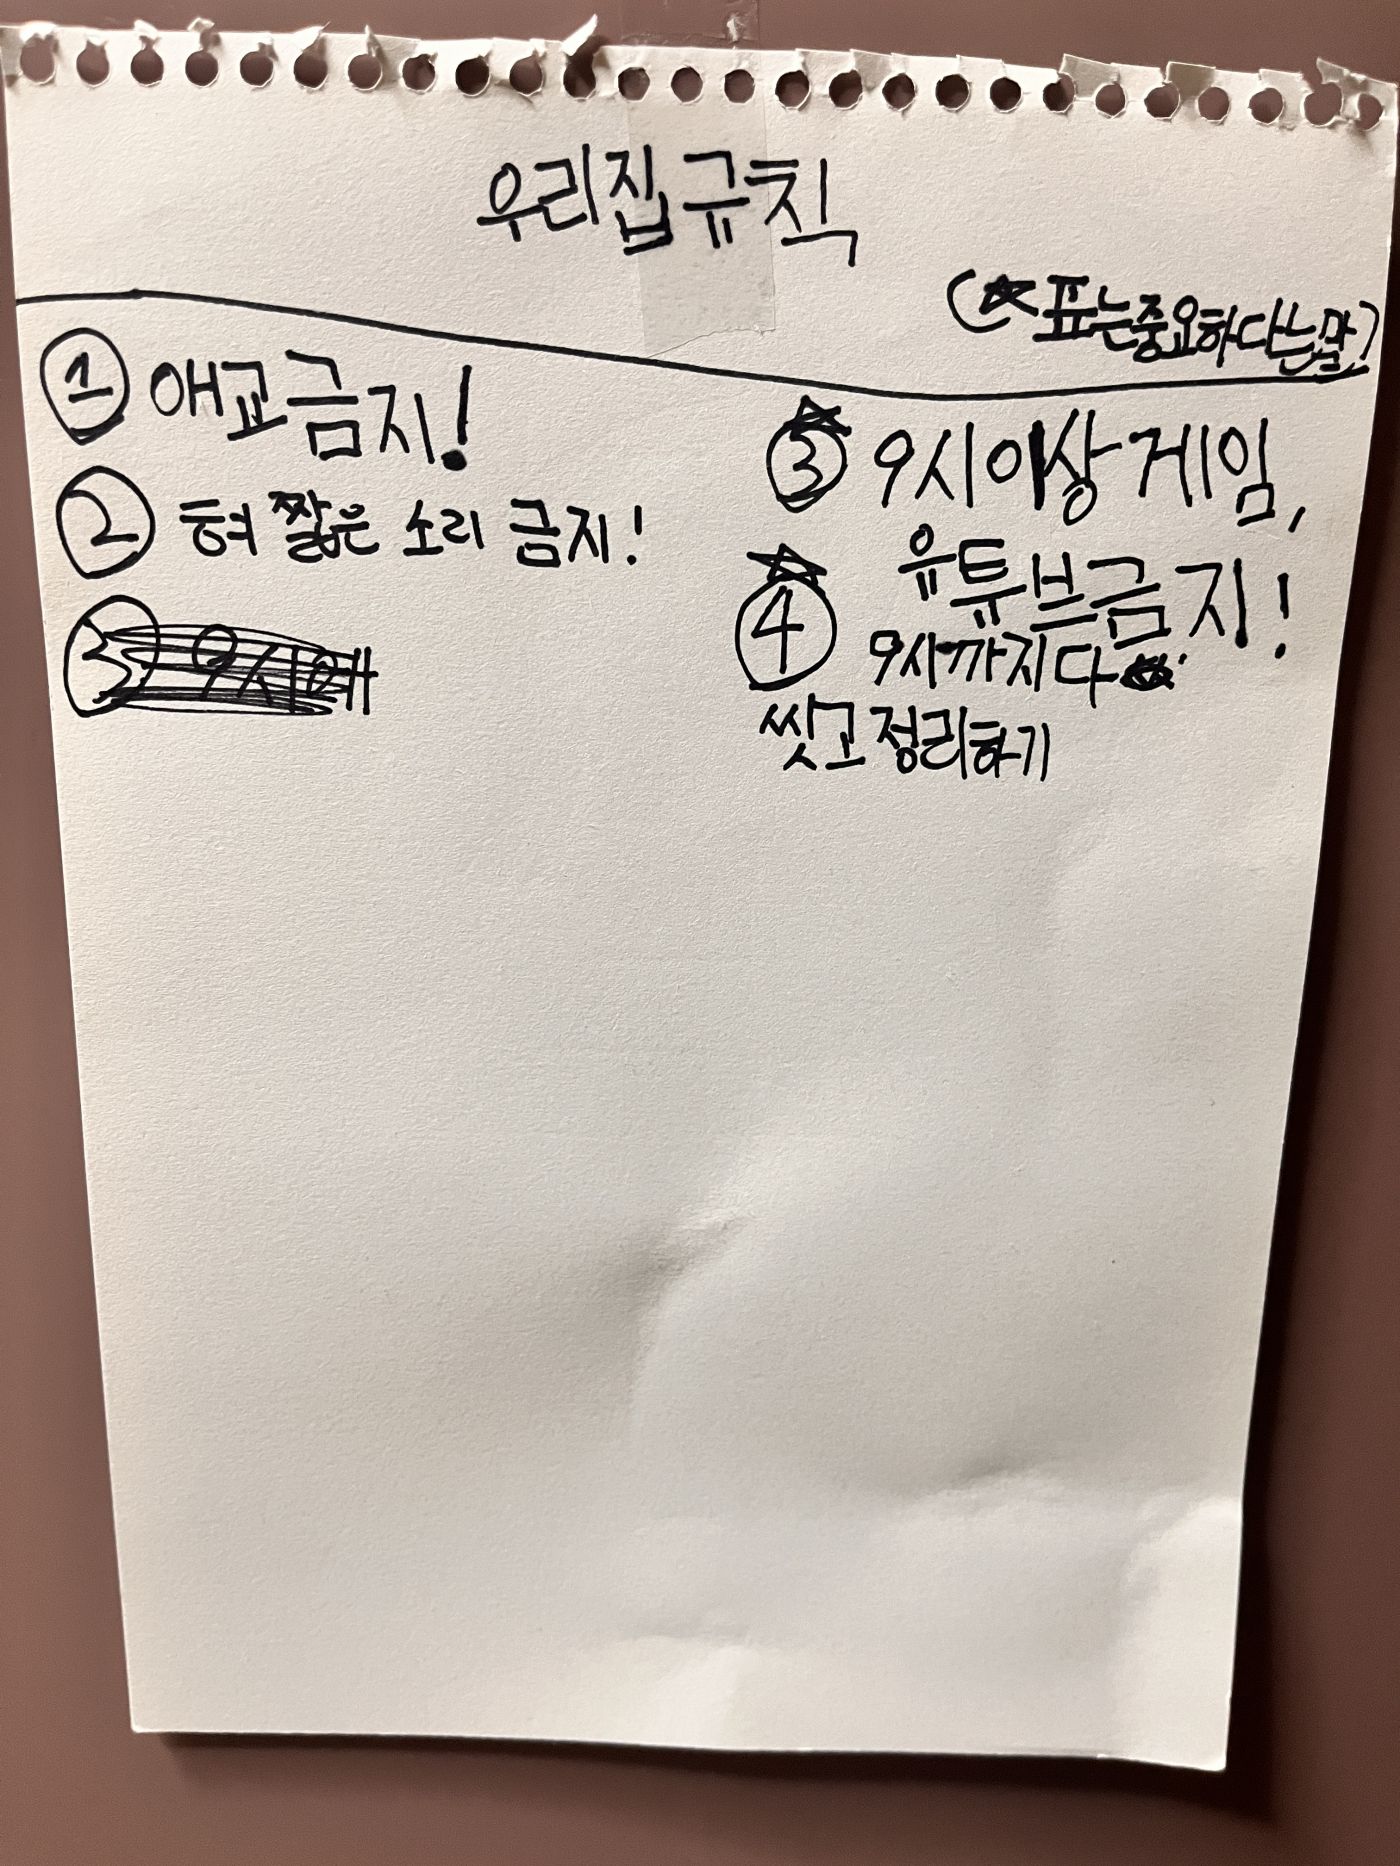 우리집 규칙
(☆표는 중요하다는 말)
① 애교금지!
② 혀 짧은 소리 금지!
③ 9시에
☆
③ 9시이상 게임,
유튜브금지!
☆
④ 9시까지 다
씻고 정리하기